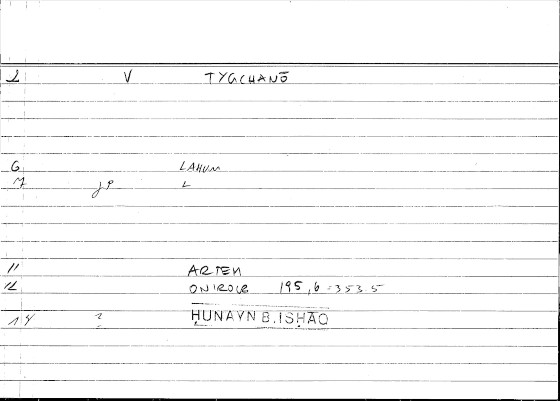 1 V TYGCHANŌ
6 LAHUM
7 JP L
11 ARTEM
12 ONIROCR 195,6=353.5
14 ? ḤUNAYN B. ISḤĀQ